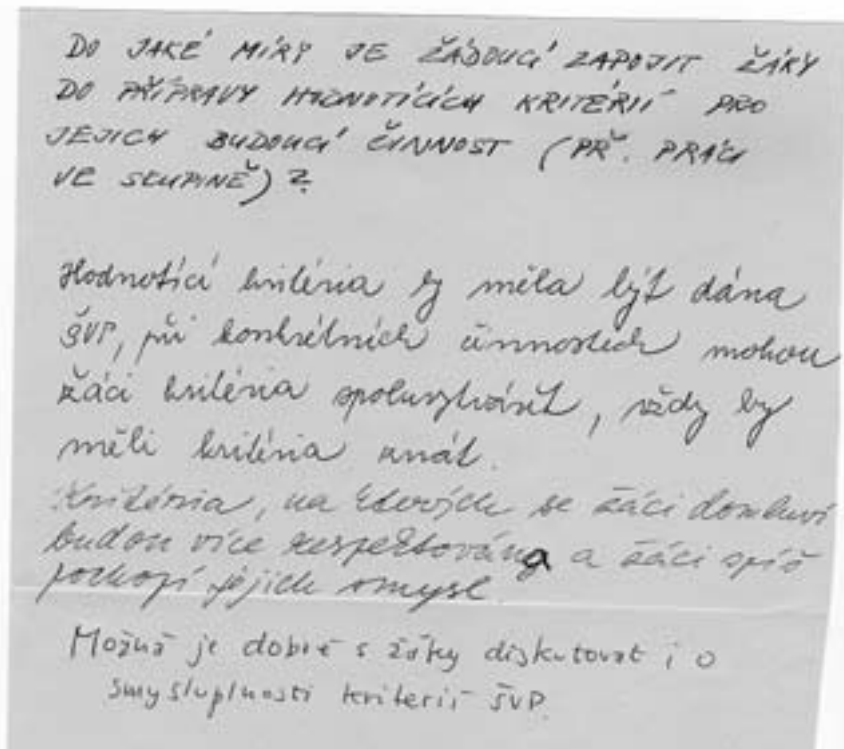 DO JAKÉ MÍRY JE ŽÁDOUCÍ ZAPOJIT ŽÁKY
DO PŘÍPRAVY HODNOTÍCÍCH KRITÉRIÍ PRO
JEJICH BUDOUCÍ ČINNOST (PŘ. PRÁCI
VE SKUPINĚ)?
Hodnotící kritéria by měla být dána
ŠVP, při konkrétních činnostech mohou
žáci kritéria spoluvytvářet, vždy by
měli kritéria znát.
Kritéria, na kterých se žáci domluví
budou více respektována a žáci spíš
pochopí jejich smysl.
Možná je dobré s žáky diskutovat i o
smysluplnosti kriterií ŠVP.